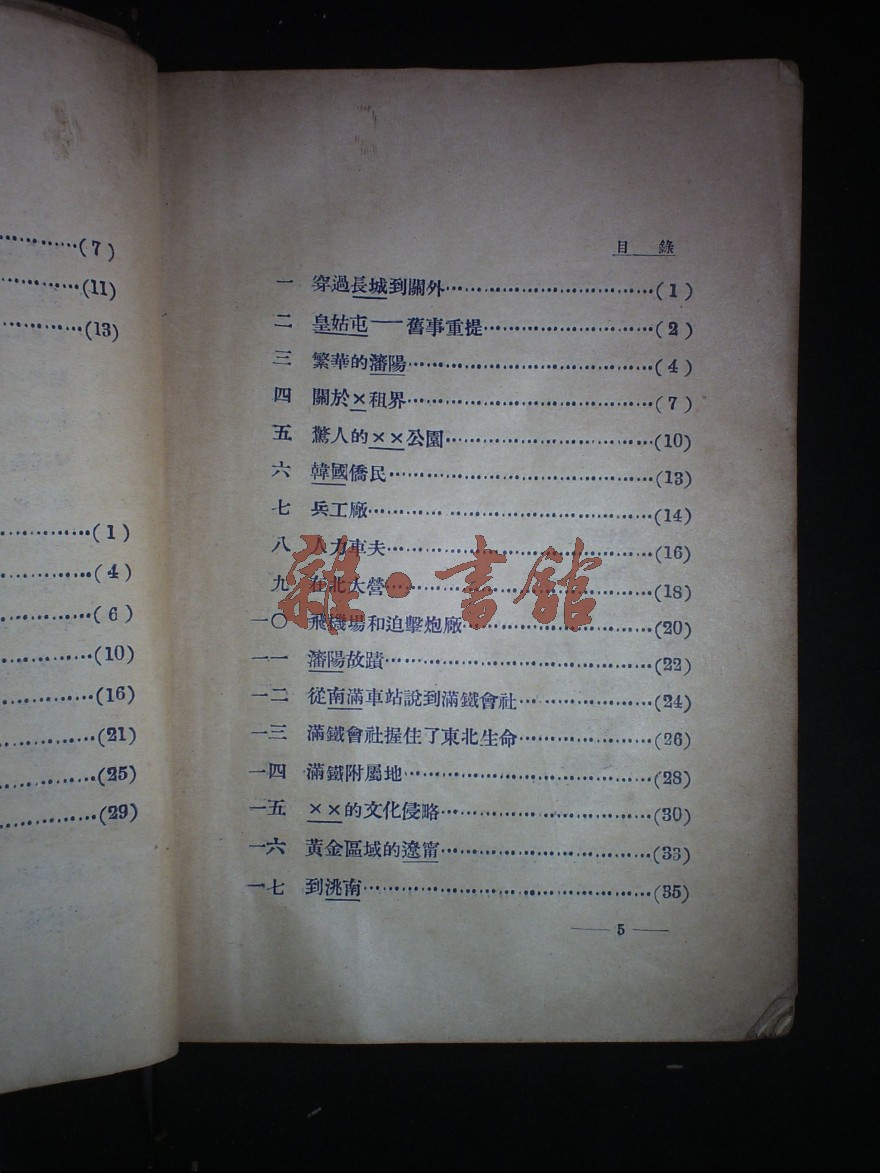 (7)
(11)
(13)
(1)
(4)
(6)
(10)
(16)
(21)
(25)
(29)
目錄
一 穿過長城到關外……(1)
二 皇姑屯——舊事重提……(2)
三 繁華的瀋陽……(4)
四 關於×租界……(7)
五 驚人的××公園……(10)
六 韓國僑民……(13)
七 兵工廠……(14)
八 人力車夫……(16)
九 在北大營……(18)
一〇 飛機場和迫擊炮廠……(20)
一一 瀋陽故蹟……(22)
一二 從南滿車站說到滿鐵會社……(24)
一三 滿鐵會社握住了東北生命……(26)
一四 滿鐵附屬地……(28)
一五 ××的文化侵略……(30)
一六 黃金區域的遼甯……(33)
一七 到洮南……(35)
— 5 —
雜·書館